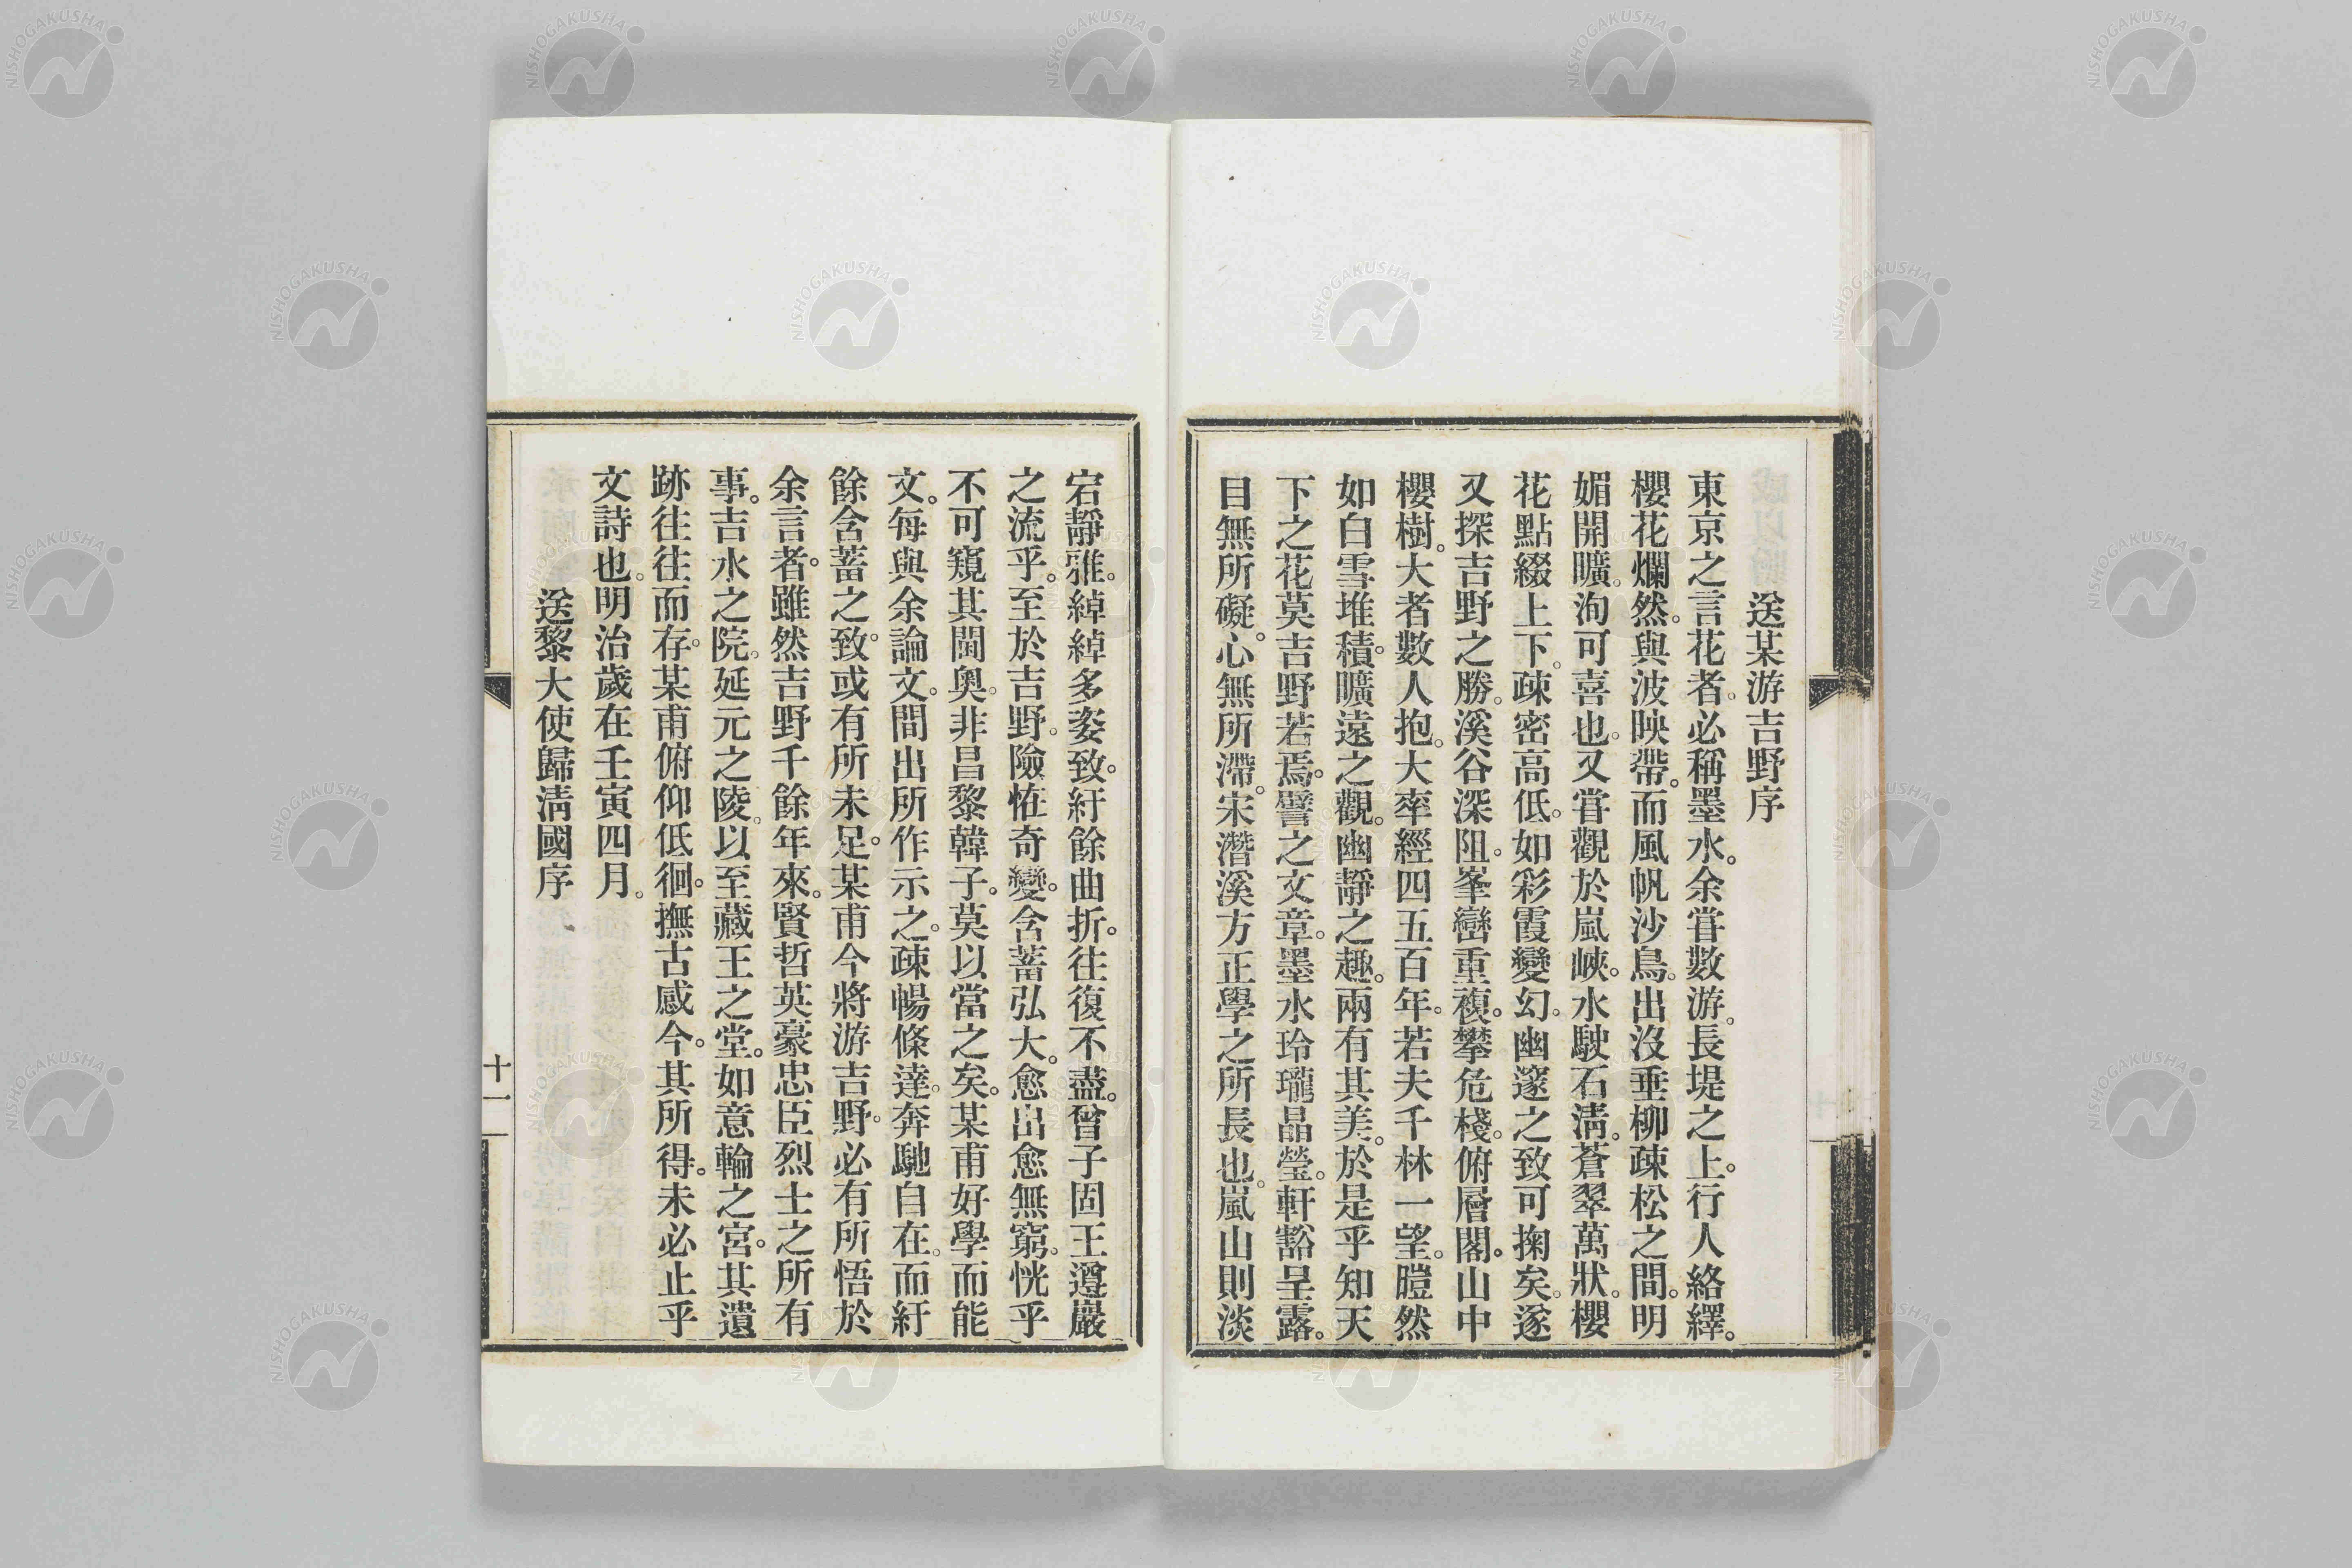 送某游吉野序
東京之言花者。必稱墨水。余甞數游。長堤之上。行人絡繹。
櫻花爛然。與波映帶。而風帆沙鳥。出沒垂柳疎松之間。明
媚開曠。洵可喜也。又甞觀於嵐峽。水駛石淸。蒼翠萬狀。櫻
花點綴上下。疎密高低。如彩霞變幻。幽邃之致可掬矣。遂
又探吉野之勝。溪谷深阻。峯巒重複。攀危棧。俯層閣。山中
櫻樹。大者數人抱。大率經四五百年。若夫千林一望。皚然
如白雪堆積。曠遠之觀。幽靜之趣。兩有其美。於是乎知天
下之花莫吉野若焉。譬之文章。墨水玲瓏晶瑩。軒豁呈露。
目無所礙。心無所滯。宋潛溪方正學之所長也。嵐山則淡
宕靜雅。綽綽多姿致。紆餘曲折。往復不盡。曾子固王遵巖
之流乎。至於吉野。險恠奇變。含蓄弘大。愈出愈無窮。恍乎
不可窺其閫奧。非昌黎韓子。莫以當之矣。某甫好學而能
文。每與余論文。間出所作示之。疎暢條達。奔馳自在。而紆
餘含蓄之致。或有所未足。某甫今將游吉野。必有所悟於
余言者。雖然吉野千餘年來。賢哲英豪忠臣烈士之所有
事。吉水之院。延元之陵。以至藏王之堂。如意輪之宮。其遺
跡往往而存。某甫俯仰低徊。撫古感今。其所得。未必止乎
文詩也。明治歲在壬寅四月。
送黎大使歸淸國序
十一
NISHOGAKUSHA